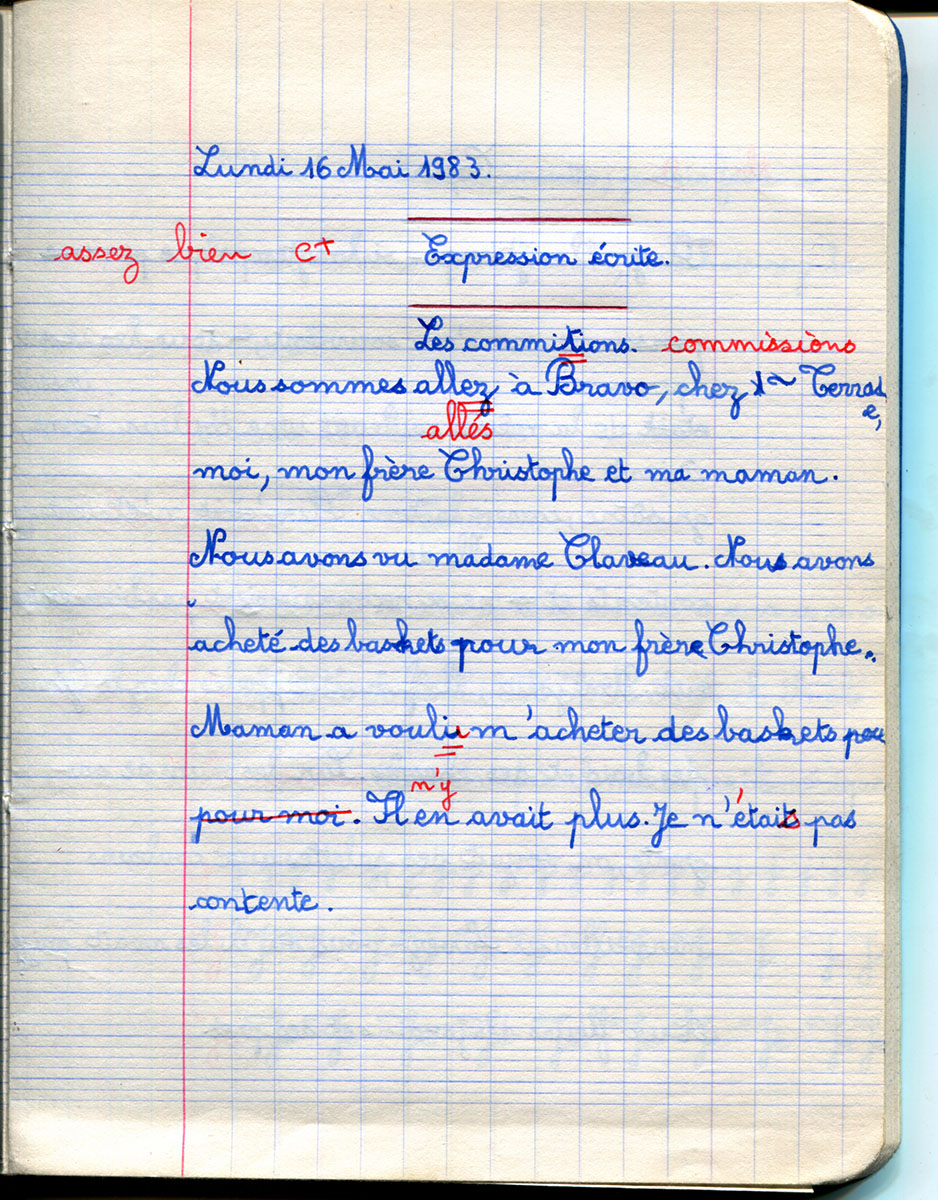 Lundi 16 Mai 1983.
assez bien C+ Expression écrite.
Les commitions. commissions
Nous sommes allez à Bravo, chez Terras
e,
allés
moi, mon frère Christophe et ma maman.
Nous avons vu madame Claveau. Nous avons
acheté des baskets pour mon frère Christophe.
Maman a voulu m'acheter des baskets pou
n'y
pour moi. Il en avait plus. Je n'étais pas
contente.